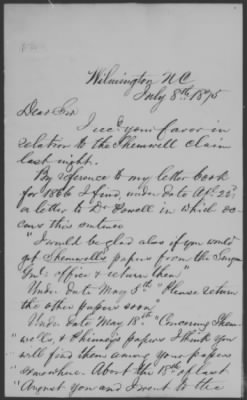 Wilmington NC
July 8th 1875
Dear Sir
I recd your favor in
relation to the Shemwell claim
last night.
By reference to my letter book
for 1866 I find, under date
a letter to Dr Powell in which oc
curs this sentence
"I would be glad also if you would
get Shemwells papers from the Surgeon
Genls Office & return them"
Under date May 8th "Please return
the other papers soon"
Under date May 18th "Concerning Shem
wells, & papers I think you
will find them among your papers
somewhere. About the 18th of last
August you and I went to the